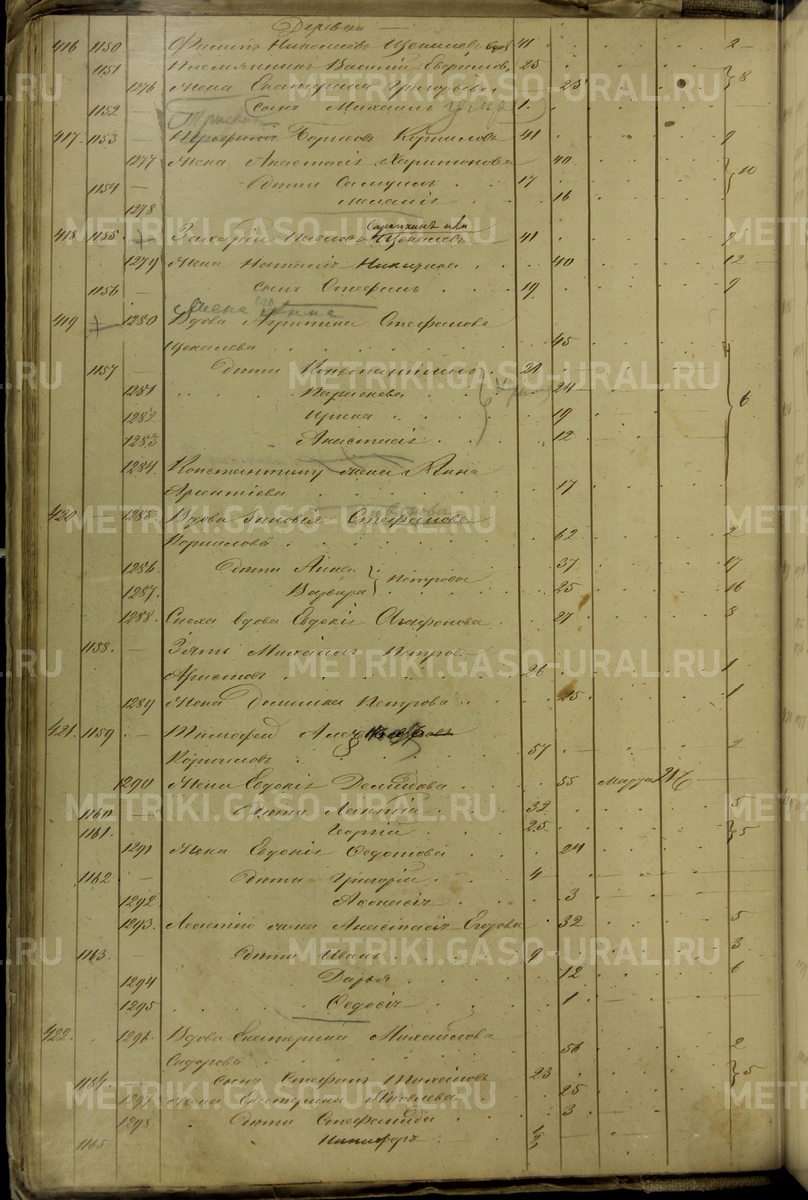 Деревни
416 1150 — Филипъ Николаевъ Щекалевъ вдов 41 2
1151 Племянникъ Василий Евфимовъ 25
1276 Жена Екатерина Григорьева 25 8
1152 — сынъ Михаилъ умре 1
417 1153 — Борисовъ Корниловъ 41 9
1277 Жена Анастасія Харитонова 40 10
1154 — дѣти Самуилъ 17
1278 Меланія 16
418 1155 Захарій Павловъ Щекалевъ 41 9
1279 Жена Наталія 40 12
1156 — сынъ Стефанъ 19 9
419 1280 Вдова Стефанова
Щекалева 45
1157 — дѣти Константинъ 21
1281 Парасковья 24 6
1282 Ирина 19
1283 Анастасія 12
1284 Константину жена Анна
Арсентіева 17
420 1285 Вдова Зиновія Стефанова
Корнилова 62 2
1286 дѣти Анна 37 17
1287 Варвара Петровы 25 16
1288 Сноха вдова Евдокія Агафонова 27 8
1158 — Зять Михаилъ Петровъ
Аристовъ 26 1
1289 Жена Домника Петрова 25 1
421 1159 — Тимофей
Корниловъ 57 2
1290 Жена Евдокія Демидова 55 Марта 26
1160 — дѣти Леонтій 32 5
1161 — Георгій 25 5
1291 Жена Евдокія Федотова 24
1162 — дѣти Григорій 4
1292 Афонасія 3
1293 Леонтію жена Анастасія Егорова 32 5
1163 — дѣти Иванъ 9 3
1294 Дарья 12 6
1295 Федосія 1
422 1296 Вдова Екатерина Михайлова
Сидорова 56 2
1164 — сынъ Стефанъ 23 5
1297 Жена Екатерина Яковлева 25
1298 дѣти Стефанида 3
1165 Никифоръ 1/2
METRIKI.GASO-URAL.RU